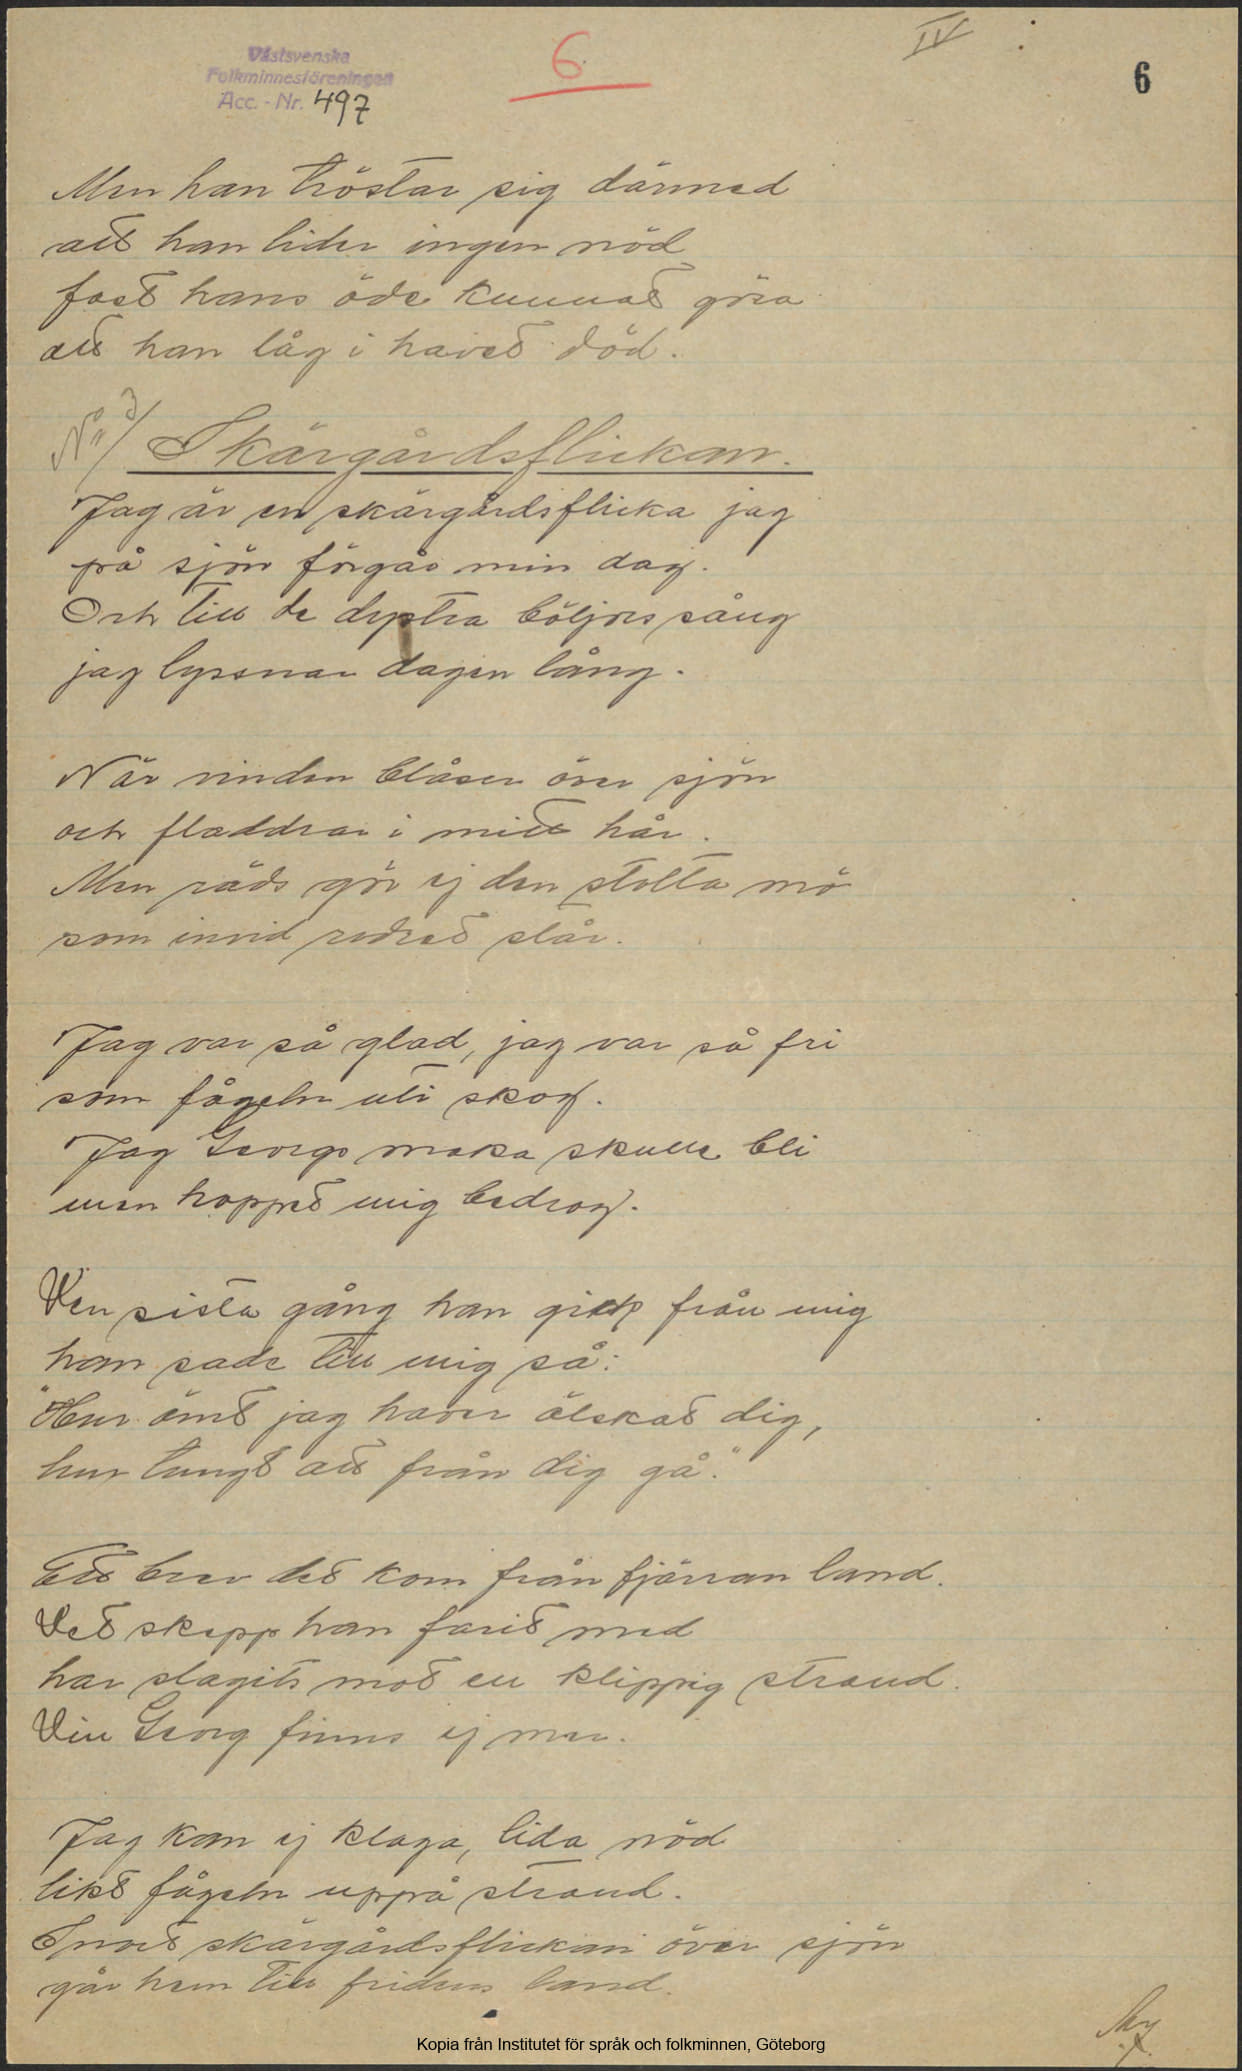 Västsvenska
Folkminnesföreningen
Acc. - Nr. 497
6
IV
6
Men han tröstar sig därmed
att han lider ingen nöd
fast hans öde kunnat göra
att han låg i havet död.
No 3/ Skärgårdsflickan.
Jag är en skärgårdsflicka jag
på sjön förgås min dag.
Och till de dystra böljors sång
jag lyssnar dagen lång.
När vinden blåser över sjön
och fladdrar i mitt hår.
Men räds gör ej den stolta mö
som invid rodret står.
Jag var så glad, jag var så fri
som fågeln uti skog.
Jag Georgs maka skulle bli
men hoppet mig bedrog.
Den sista gång han gick från mig
han sade till mig så:
"Hur ömt jag haver älskat dig,
hur tungt att från dig gå."
Ett brev det kom från fjärran land.
Det skepp han farit med
har slagits mot en klippig strand.
Din Georg finns ej mer.
Jag kan ej klaga, lida nöd
likt fågeln uppå strand.
Snart skärgårdsflickan över sjön
går hem till fridens land.
Kopia från Institutet för språk och folkminnen, Göteborg